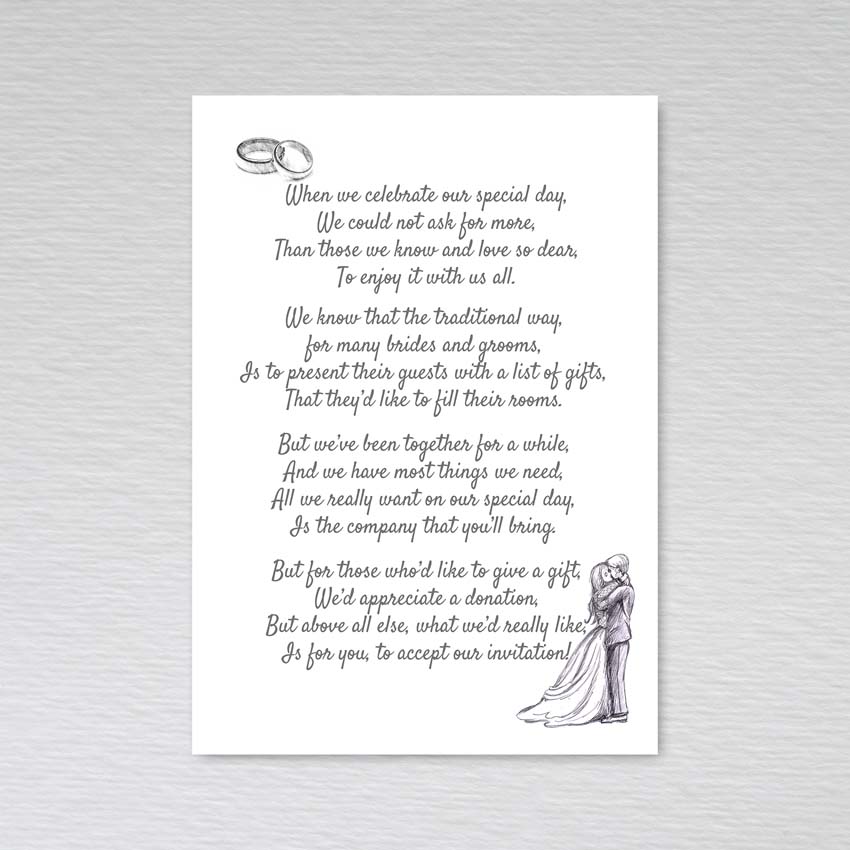 When we celebrate our special day,
We could not ask for more,
Than those we know and love so dear,
To enjoy it with us all.
We know that the traditional way,
for many brides and grooms,
Is to present their guests with a list of gifts,
That they'd like to fill their rooms.
But we've been together for a while,
And we have most things we need,
All we really want on our special day,
Is the company that you'll bring.
But for those who'd like to give a gift,
We'd appreciate a donation,
But above all else, what we'd really like,
Is for you, to accept our invitation!